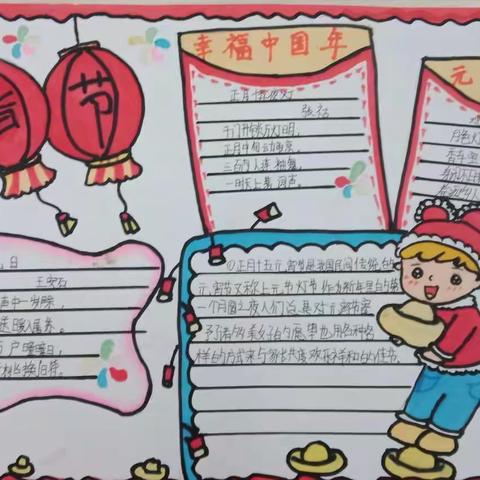 春
节
幸福中国年
正月十五夜灯
张祜
千门开锁万灯明,
正月中旬动帝京。
三百内人连袖舞,
一时天上著词声。
元
月色灯
香车
日
王安石
声中一岁除,
送暖入屠苏。
户曈曈日,
桃换旧符。
①正月十五元宵节是我国民间传统的
元宵节又称上元节灯节作为新年里的第
一个月圆之夜人们总是对元宵节寄
予了诸多美好的愿望也用各种各
样的方式来与家长共度欢乐祥和的佳节。